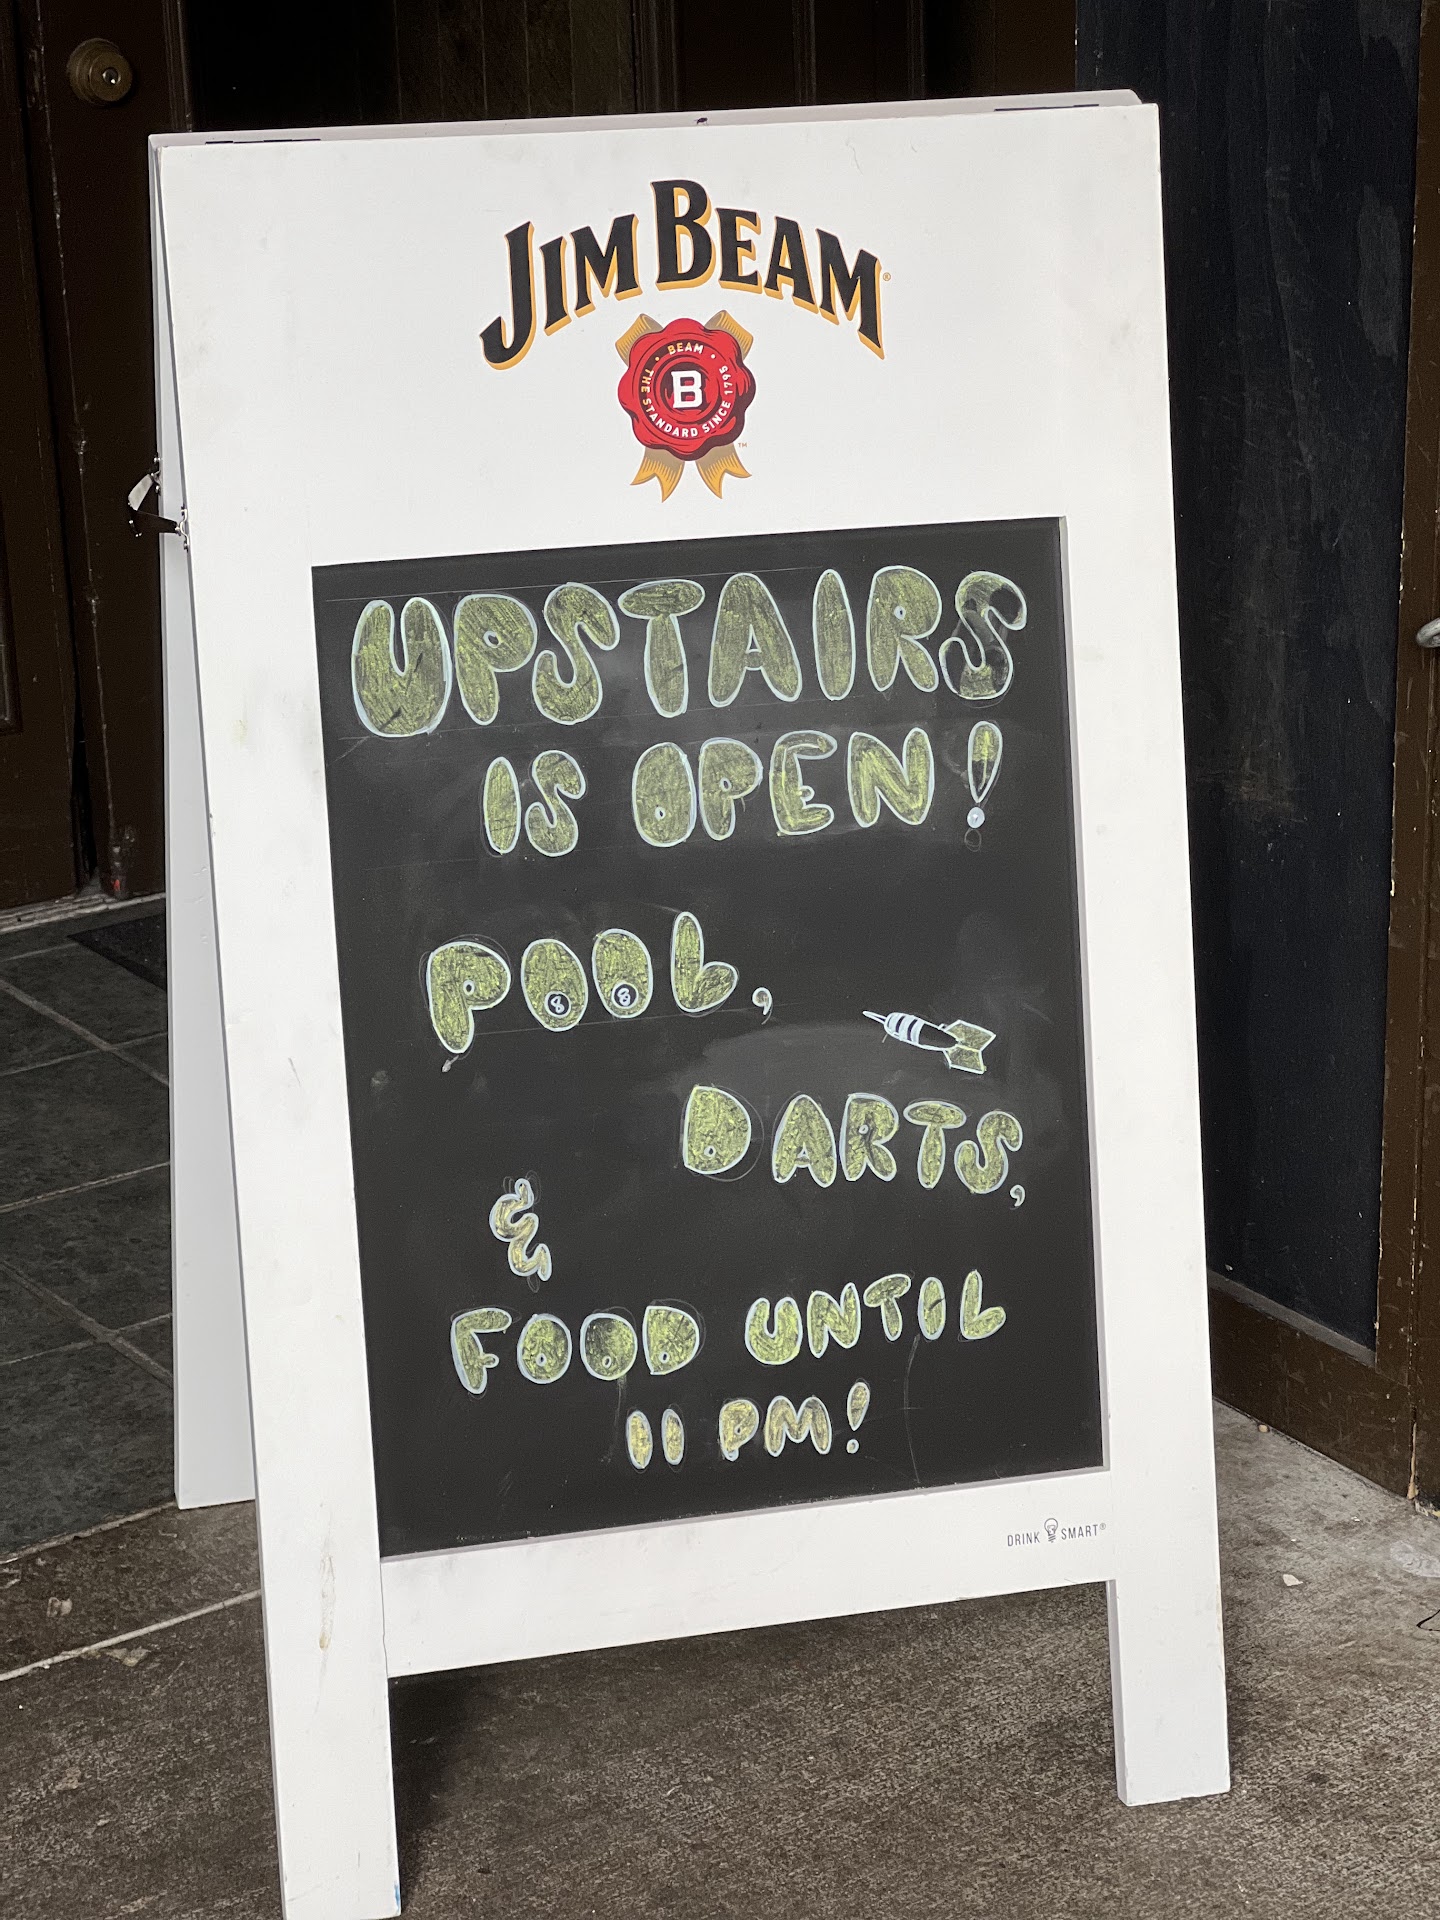 JIM BEAM®
BEAM
B
THE STANDARD SINCE 1795
TM
UPSTAIRS
IS OPEN!
POOL,
8 8
DARTS,
&
FOOD UNTIL
11 PM!
DRINK SMART®